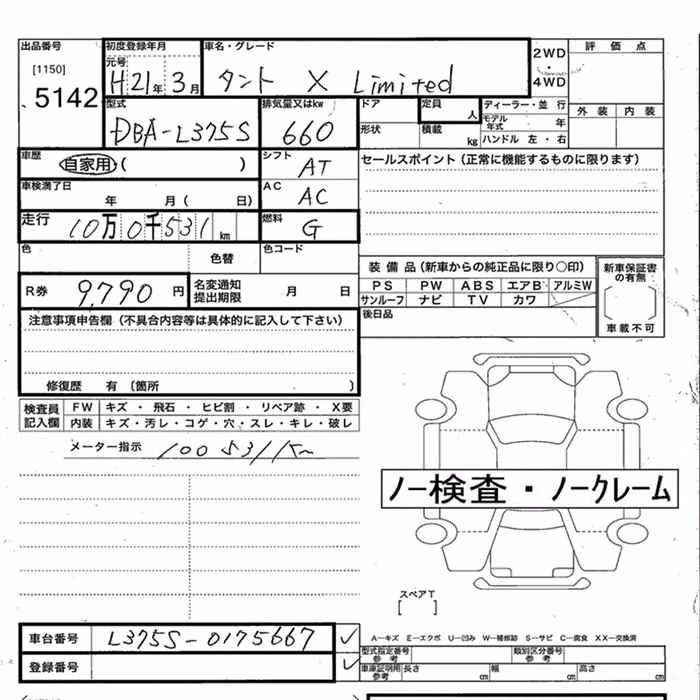 出品番号 初度登録年月 車名・グレード 2WD 評価点
[1150] 元号 ・
5142 H21年 3月 タント X Limited 4WD
型式 排気量又はkw ドア 定員 ディーラー・並 行 外装 内装
DBA-L375S 660 人 モデル年式 年
形状 積載 kg ハンドル 左・右
車歴 自家用( ) シフト AT セールスポイント(正常に機能するものに限ります)
車検満了日 年 月( 日) AC AC
走行 10万0千531km 燃料 G
色 色替 色コード
装備品(新車からの純正品に限り○印) 新車保証書の有無
R券 9,790円 名変通知提出期限 月 日 PS PW ABS エアB アルミW
サンルーフ ナビ TV カワ
注意事項申告欄(不具合内容等は具体的に記入して下さい) 後日品 車載不可
修復歴 有(箇所 )
検査員記入欄 FW キズ・飛石・ヒビ割・リペア跡・X要
内装 キズ・汚レ・コゲ・穴・スレ・キレ・破レ
メーター指示 100531km
ノー検査・ノークレーム
スペアT
[ ]
車台番号 L375S-0175667 ✓ A-キズ E-エクボ U-凹み W-補修跡 S-サビ C-腐食 XX-交換済
型式指定番号 参考 類別区分番号 参考
登録番号 ✓ 車庫証明用参考 長さ cm 幅 cm 高さ cm